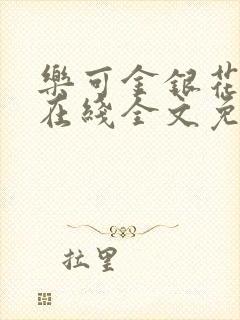 樂可金銀花
在綫全文免
拉里